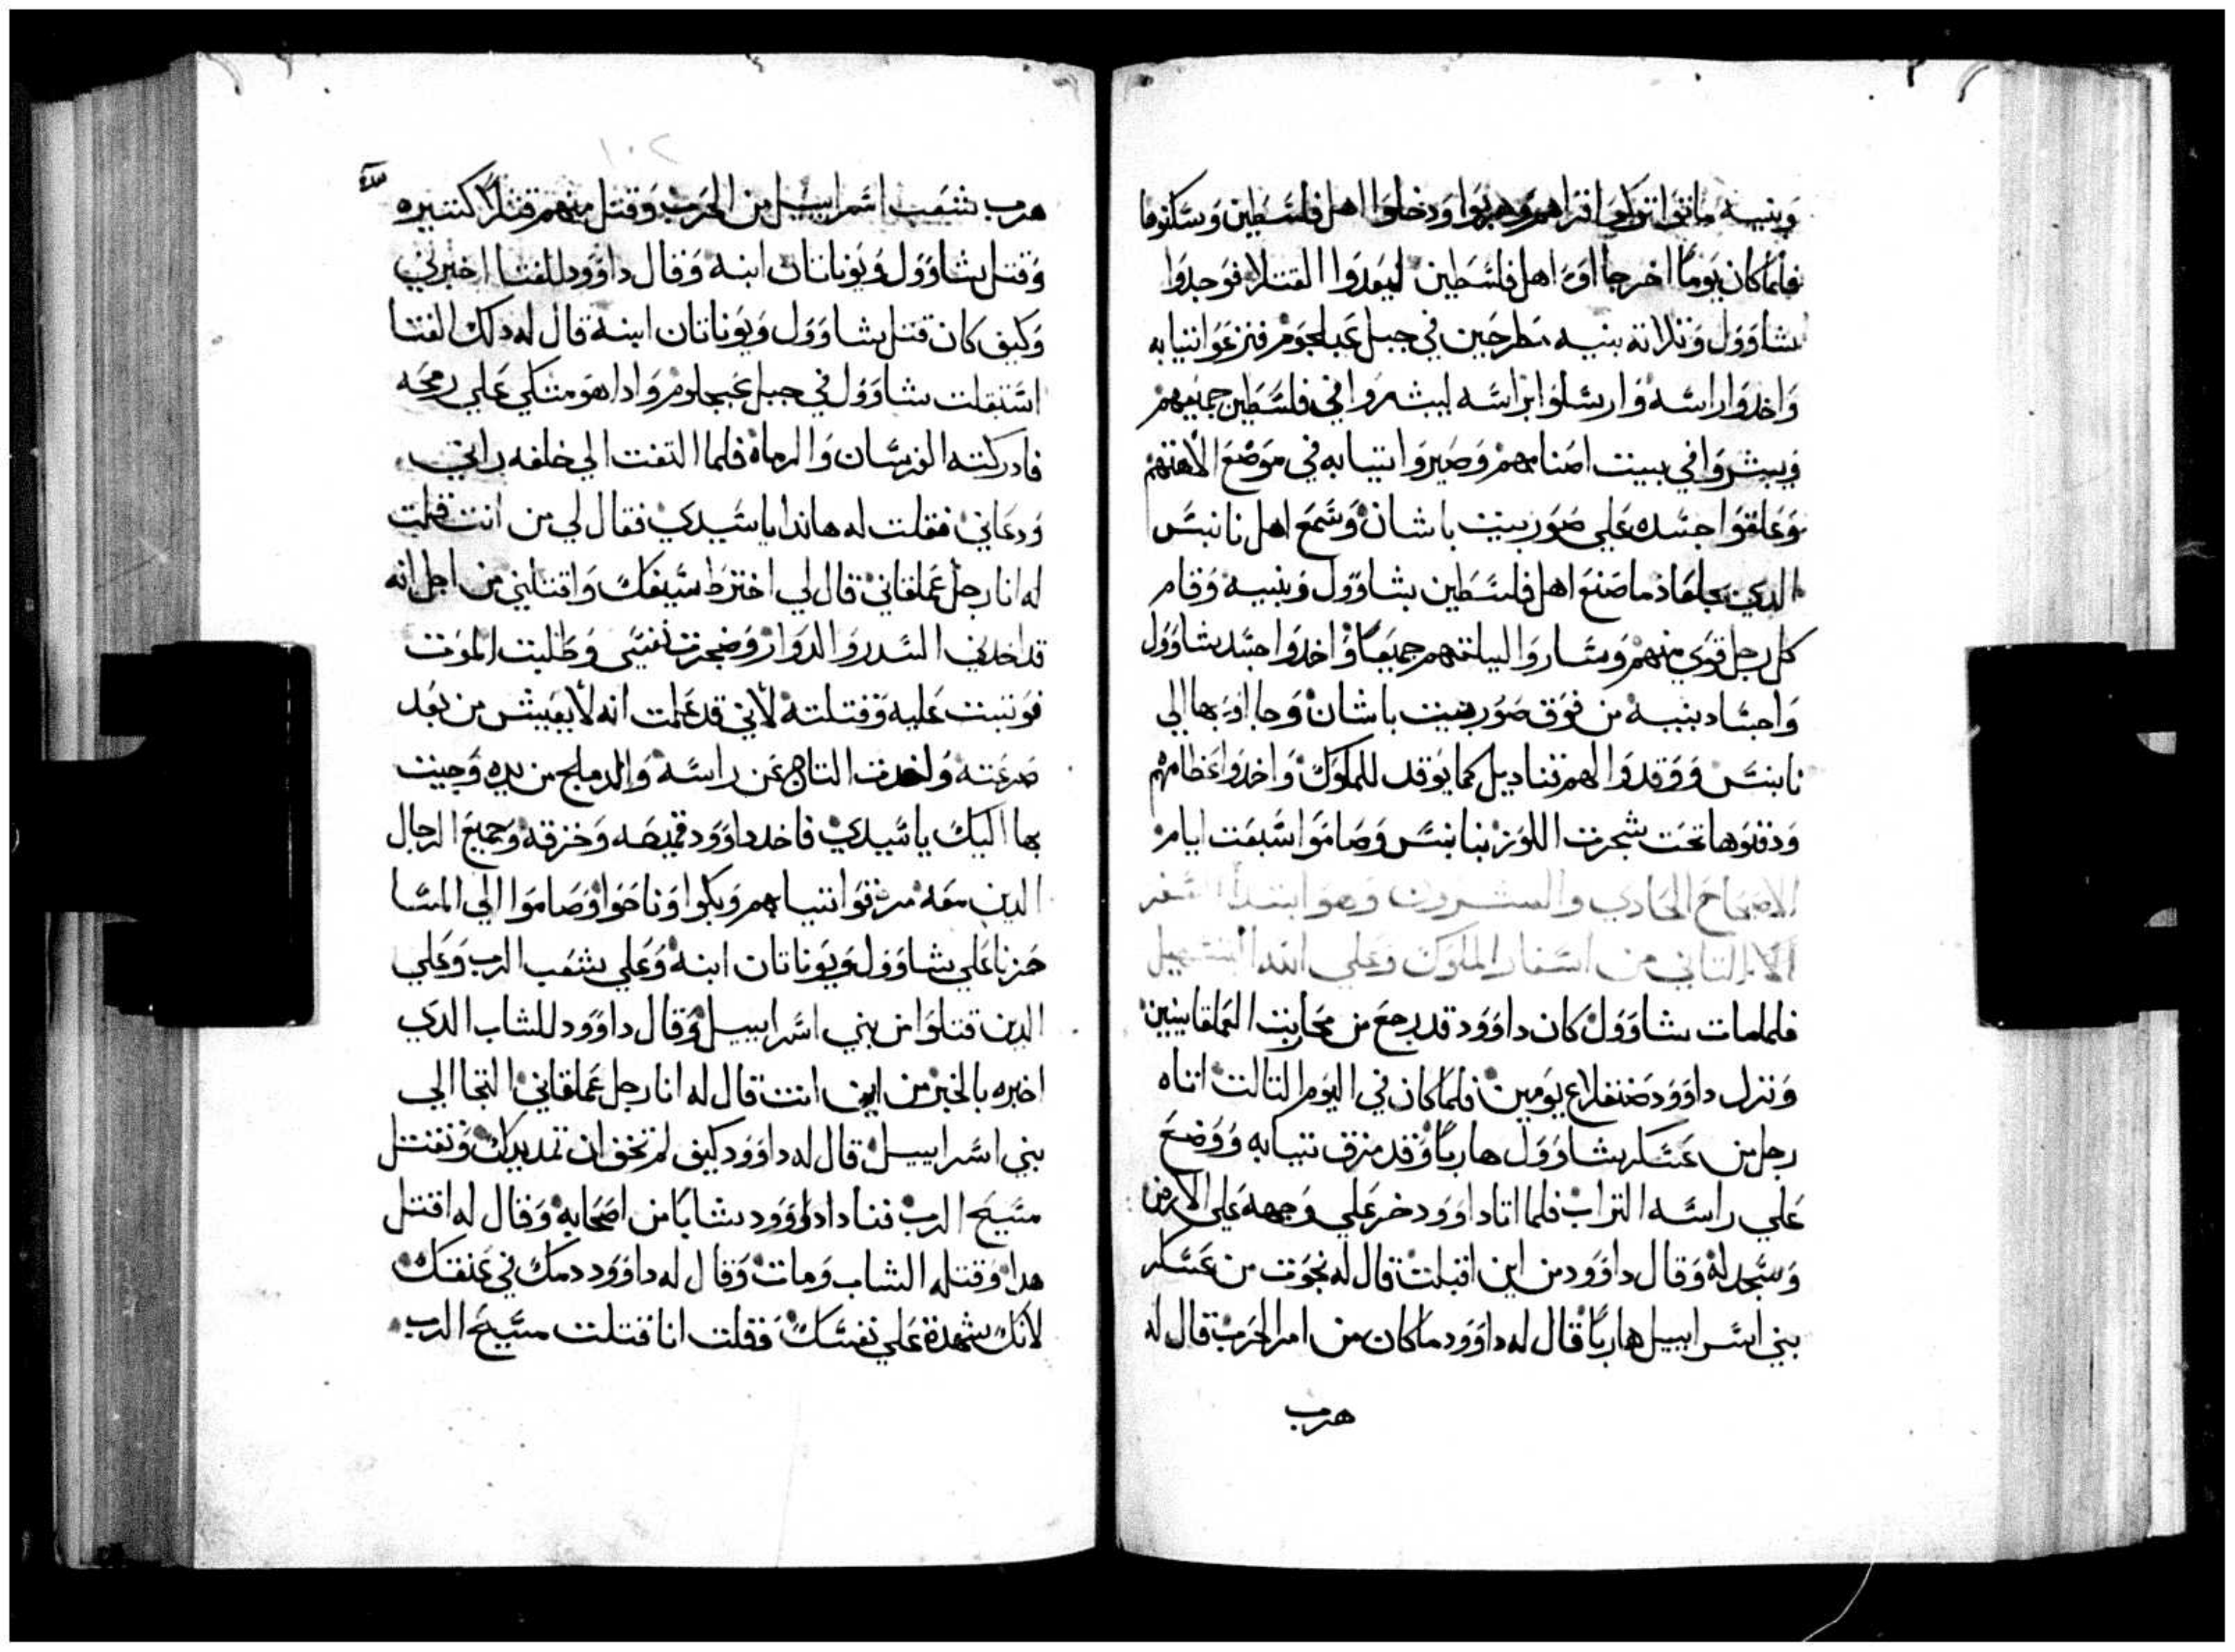 وبنيه ماتوا تركوا قراهم وهربوا ودخلوا اهل فلسطين وسكنوها
فلما كان يوما اخر جااوا اهل فلسطين ليعدوا القتلا فوجدوا
شاوول وثلاثة بنيه مطرحين في جبل عبلجوم فنزعوا ثيابه
واخدوا راسه وارسلوا براسه ليبشروا في فلسطين جميعهم
ويبشروا في بيت اصنامهم وصيروا ثيابه في موضع الاهتهم
وعلقوا جسده علي صور بيت باشان وسمع اهل نابنس
الدي بجلعاد ما صنع اهل فلسطين بشاوول وبنيه وقام
كل رجل قوي منهم وساروا ليلتهم جميعا واخدوا جسد شاوول
واجساد بنيه من فوق صور بيت باشان وجااوا بها الي
نابنس ووقدوا لهم قناديل كما يوقد للملوك واخدوا عظامهم
ودفنوها تحت شجرت اللوز بنابنس وصاموا سبعت ايام
الاصحاح الحادي والعشرون وهو ابتدا السفر
التاني من اسفار الملوك وعلي الله التسهيل
فلما مات شاوول كان داوود قد رجع من محاربت العملقانيين
ونزل داوود صنقلاع يومين فلما كان في اليوم التالت اتاه
رجل من عسكر شاوول هاربا وقد مزق تيابه ووضع
علي راسه التراب فلما اتا داوود خر علي وجهه علي الارض
وسجد له وقال داوود من اين اقبلت قال له نجوت من عسكر
بني اسراييل هاربا قال له داوود ما كان من امر الحرب قال له
هرب
١٠٢
هرب شعب اسراييل من الحرب وقتل منهم قتلا كتيره
وقتل شاوول ويوناتان ابنه وقال داوود للفتا اخبرني
وكيف كان قتل شاوول ويوناتان ابنه قال له دلك الفتا
استقبلت شاوول في جبل عبجلوم وادا هو متكي علي رمحه
فادركته الفرسان والرماه فلما التفت الي خلفه راني
ودعاني فقلت له هاندا يا سيدي فقال لي من انت قلت
له انا رجل عملقاني قال لي اخترط سيفك واقتلني من اجل انه
قد اخدني السدر والدوار وضجرت نفسي وطلبت الموت
فوتبت عليه وقتلته لاني قد علمت انه لا يعيش من بعد
صرعته واخدت التاج عن راسه والدملج من يده وجيت
بها اليك يا سيدي فاخد داوود قميصه وخزقه وجميع الرجال
الدين معه مزقوا تيابهم وبكوا وناحوا وصاموا الي المسا
حزنا علي شاوول ويوناتان ابنه وعلي شعب الرب وعلي
الدين قتلوا من بني اسراييل وقال داوود للشاب الدي
اخبره بالخبر من اين انت قال له انا رجل عملقاني التجا الي
بني اسراييل قال له داوود كيف لم تخف ان تمد يدك وتقتل
مسيح الرب فنادا داوود شابا من اصحابه وقال له اقتل
هدا وقتله الشاب ومات وقال له داوود دمك في عنقك
لانك شهدة علي نفسك وقلت انا قتلت مسيح الرب